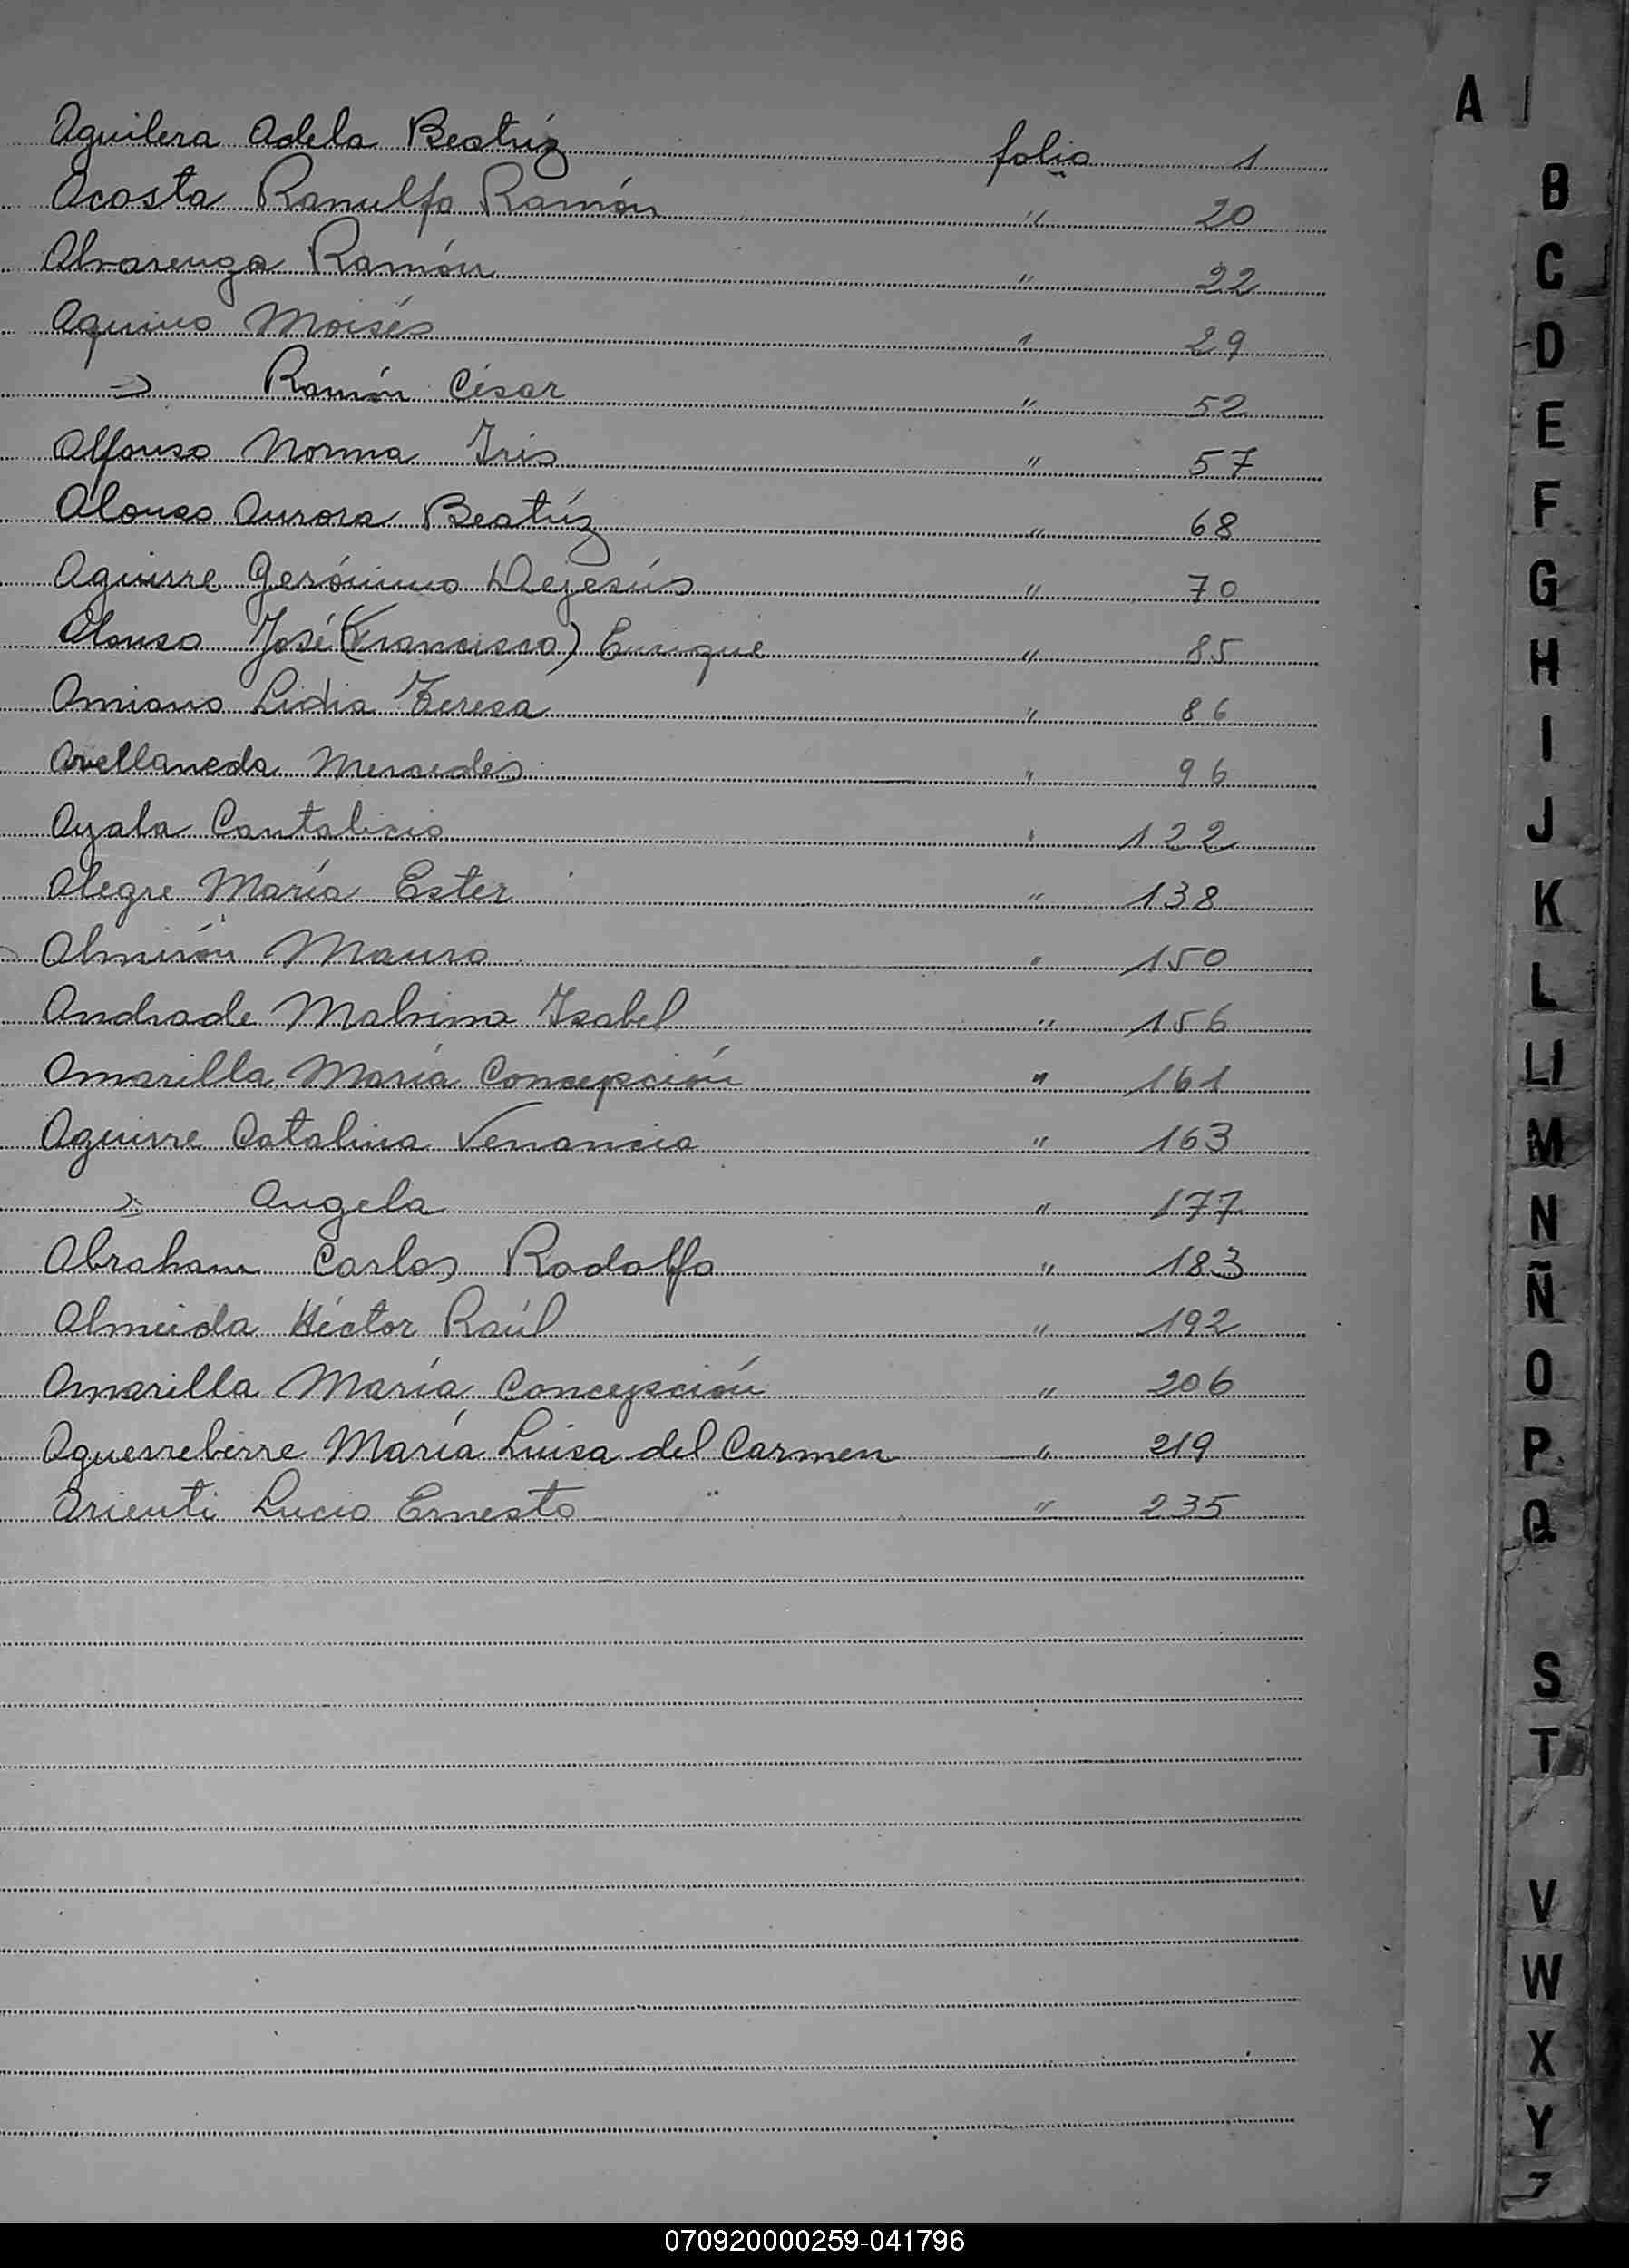 A
Aguilera Adela Beatríz folio 1
Acosta Ranulfo Ramón " 20
Alvarenga Ramón " 22
Aquino Moisés " 29
=> Ramón César " 52
Alfonso Norma Iris " 57
Alonso Aurora Beatríz " 68
Aguirre Gerónimo Dejesús " 70
Alonso José (Francisco) Enrique " 85
Amiano Lidia Teresa " 86
Avellaneda Mercedes " 96
Ayala Cantalicio " 122
Alegre María Ester " 138
Almirón Mauro " 150
Andrade Malvina Isabel " 156
Amarilla María Concepción " 161
Aguirre Catalina Venancia " 163
" Angela " 177
Abraham Carlos Rodolfo " 183
Almeida Héctor Raúl " 192
Amarilla María Concepción " 206
Aguerreberre María Luisa del Carmen " 219
Arienti Lucio Ernesto " 235
B
C
D
E
F
G
H
I
J
K
L
Ll
M
N
Ñ
O
P
Q
S
T
V
W
X
Y
070920000259-041796